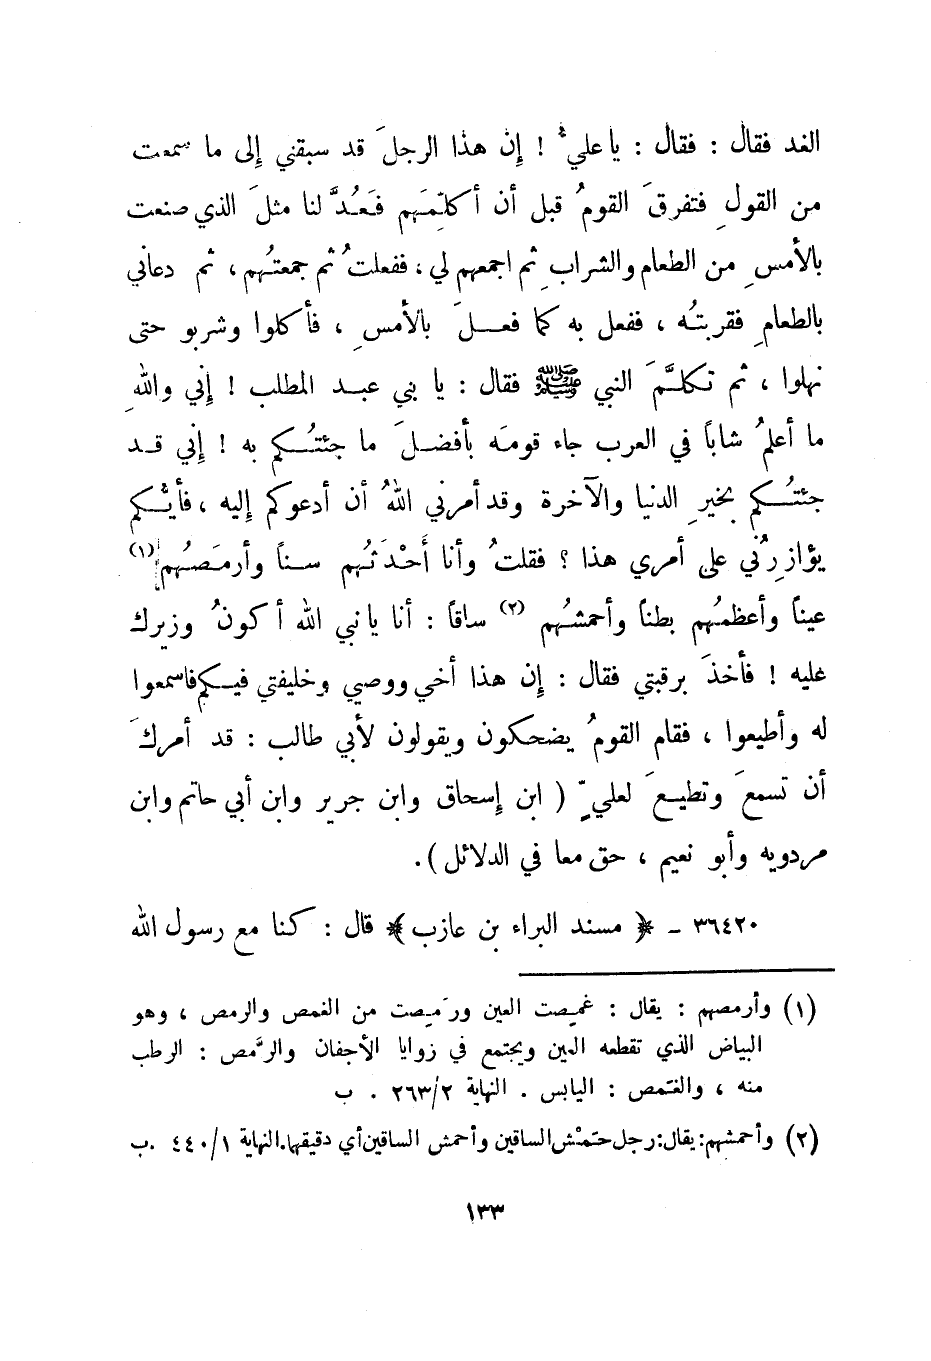 الغد فقال : فقال : يا علي ! إن هذا الرجلَ قد سبقني إلى ما سمعت
من القولِ فتفرقَ القومُ قبل أن أكلِّمَهم فَعُدَّ لنا مثلَ الذي صنعت
بالأمسِ من الطعام والشرابِ ثم اجمعهم لي ، ففعلتُ ثم جمعتُهم ، ثم دعاني
بالطعامِ فقربتُه ، ففعل به كما فعلَ بالأمسِ ، فأكلوا وشربو حتى
نهلوا ، ثم تكلَّمَ النبي ﷺ فقال : يا بني عبد المطلب ! إني واللهِ
ما أعلمُ شاباً في العرب جاء قومَه بأفضلَ ما جئتُكم به ! إني قد
جئتُكم بخيرِ الدنيا والآخرة وقد أمرني اللهُ أن أدعوكم إليه ، فأيُّكم
يؤازِرُني على أمري هذا ؟ فقلتُ وأنا أَحْدَثُهم سناً وأرمَصُهم (١)
عيناً وأعظمُهم بطناً وأحمشُهم (٢) ساقاً : أنا يا نبي الله أكونُ وزيرك
عليه ! فأخذَ برقبتي فقال : إن هذا أخي ووصي وخليفتي فيكم فاسمعوا
له وأطيعوا ، فقام القومُ يضحكون ويقولون لأبي طالب : قد أمركَ
أن تسمعَ وتطيعَ لعليٍّ ( ابن إسحاق وابن جرير وابن أبي حاتم وابن
مردويه وأبو نعيم ، حق معا في الدلائل ) .
٣٦٤٢٠ ـ ﴿ مسند البراء بن عازب ﴾ قال : كنا مع رسول الله
(١) وأرمصهم : يقال : غمِصت العين ورَمِصت من الغمص والرمص ، وهو
البياض الذي تقطعه العين ويجتمع في زوايا الأجفان والرَّمص : الرطب
منه ، والغَمص : اليابس . النهاية ٢/٢٦٣ . ب
(٢) وأحمشهم : يقال : رجل حَمْش الساقين وأحمش الساقين أي دقيقها . النهاية ١/٤٤٠ . ب
١٣٣